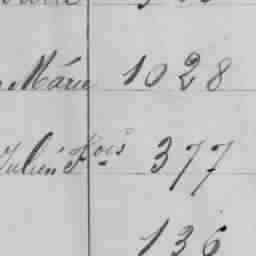 Márie 1028
Julien Fois 377
136